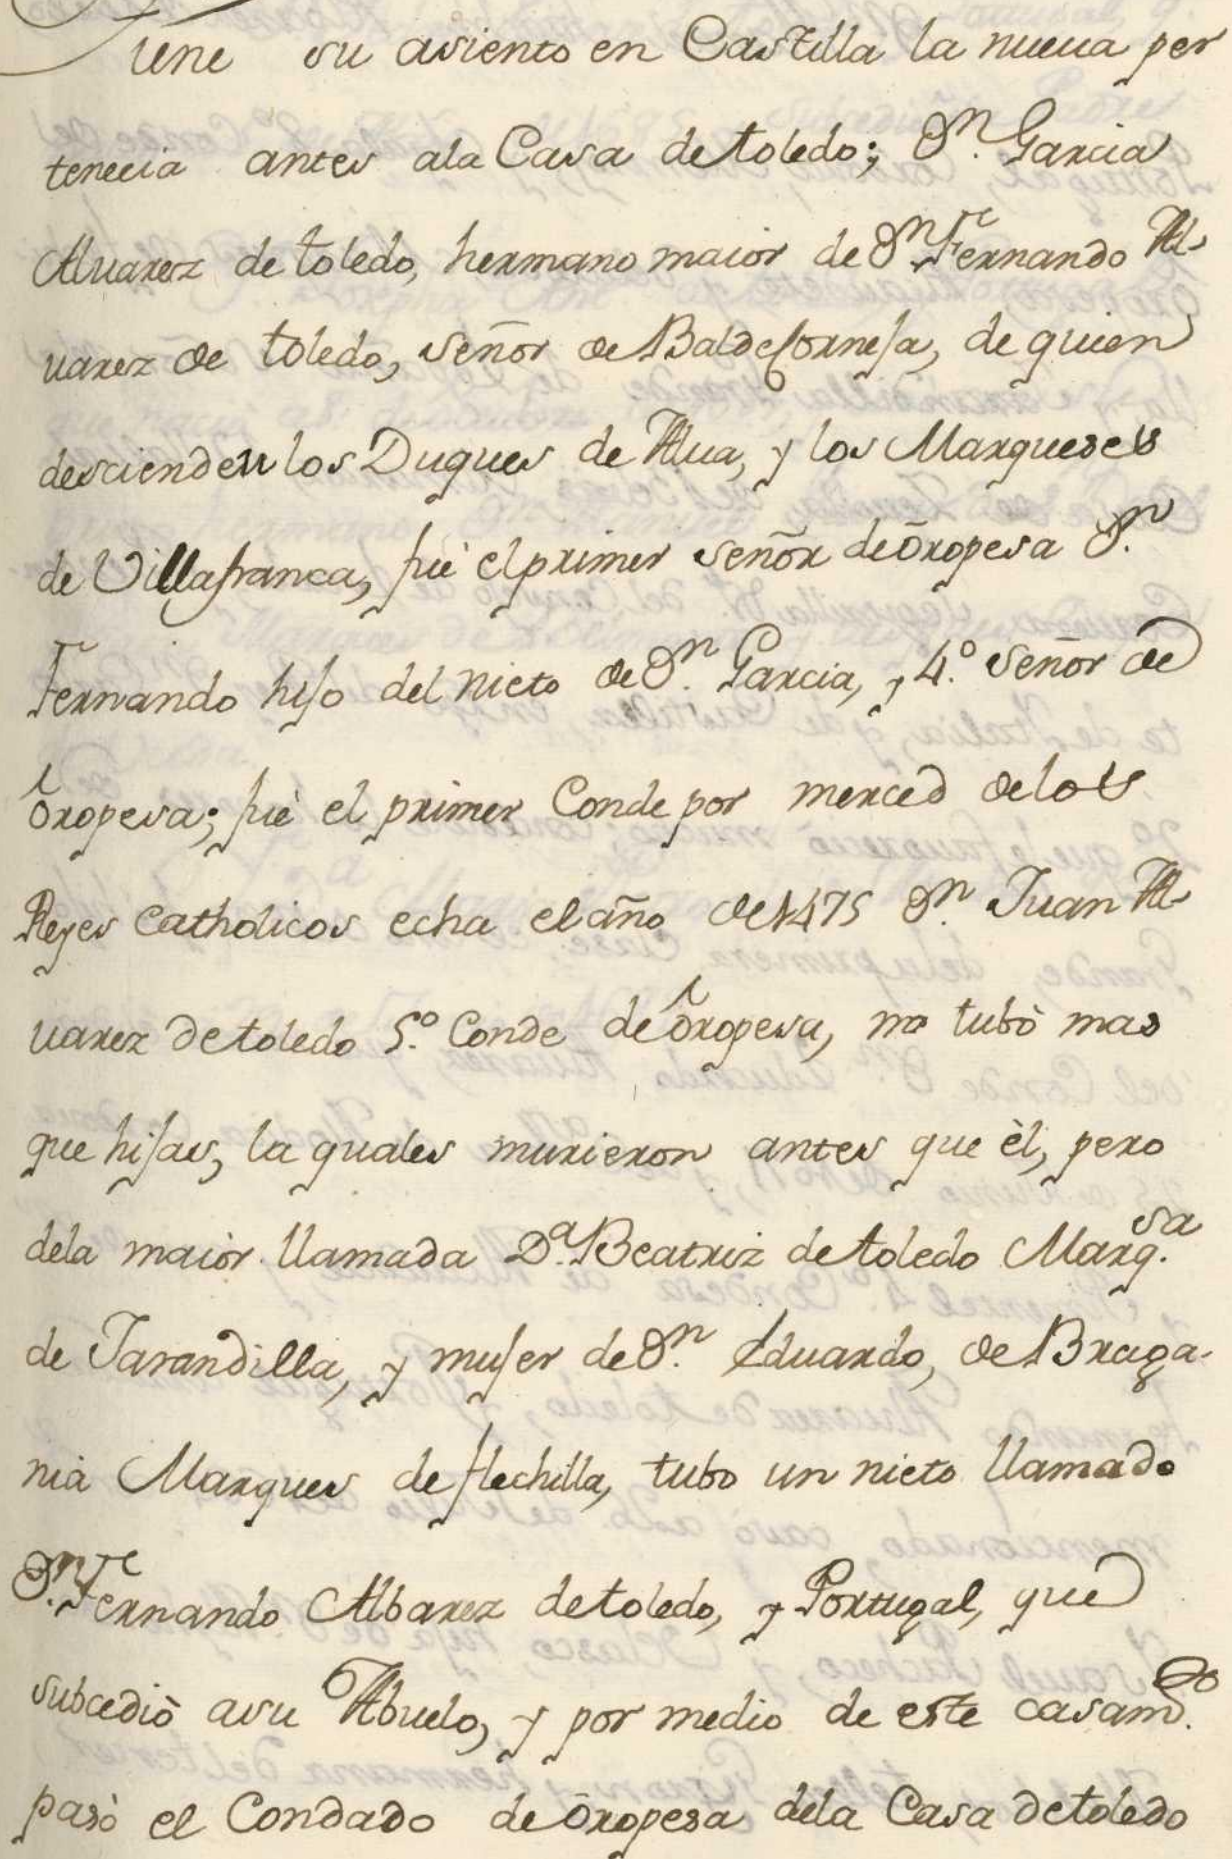 Tiene su asiento en Castilla la nueua per
tenecia antes ala Casa detoledo; Dn. Garcia
Aluarez de toledo, hermano maior de Dn. Fernando Al-
uarez de toledo, señor de Baldecorneja, de quien
descienden los Duques de Alua, y los Marqueses
de Villafranca, fuè el primer señor de Oropesa Dn.
Fernando hijo del nieto de Dn. Garcia, y 4.º señor de
Oropesa; fuè el primer Conde por merced de los
Reyes Catholicos echa el año de 1475 Dn. Juan Al-
uarez de toledo 5.º Conde de Oropesa, no tubò mas
que hijas, la quales murieron antes que èl, pero
dela maior llamada Dª. Beatriz de toledo Marq.sa
de Jarandilla, y mujer de Dn. Eduardo, de Braga-
nia Marques de flechilla, tubo un nieto llamado
Dn. Fernando Albarez de toledo, y Portugal, que
subcediò asu Abuelo, y por medio de este casamto.
pasò el Condado de Oropesa dela Casa de toledo